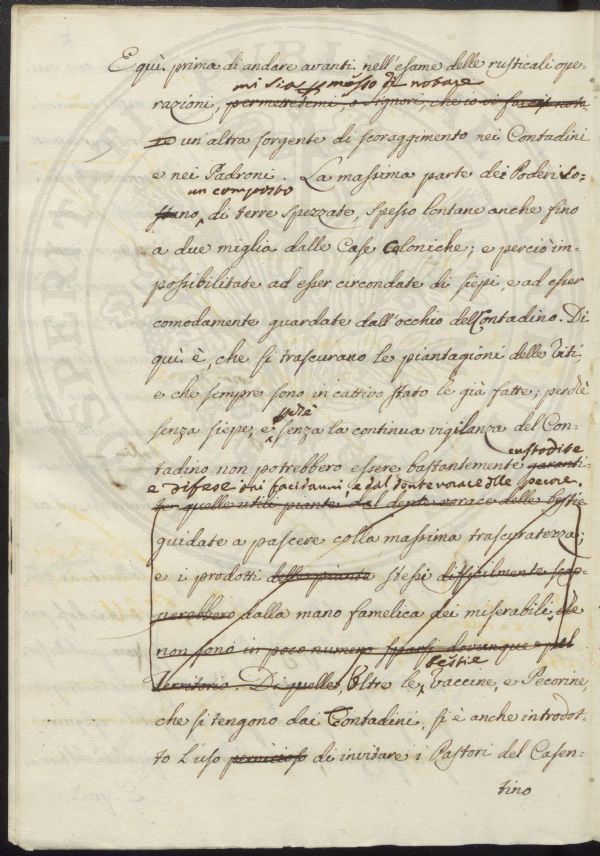 E quì prima di andare avanti nell'esame delle rusticali ope-
mi sia permesso di notare
razioni, permettetemi, o Signori, che io vi faccia nota-
re un'altra sorgente di scoraggimento nei Contadini
e nei Padroni. La massima parte dei Poderi so-
un composto
no di terre spezzate, spesso lontane anche fino
a due miglia dalle Case Coloniche; e perciò im-
possibilitate ad esser circondate di siepi, e ad esser
comodamente guardate dall'occhio del Contadino. Di
quì è, che si trascurano le piantagioni delle Viti,
e che sempre sono in cattivo stato le già fatte; perchè
più
senza siepe, e senza la continua vigilanza del Con-
custodite
tadino non potrebbero essere bastantemente garanti-
e difese dai facidanni, e dal dente vorace delle pecore.
te quelle utili piante dal dente vorace delle bestie
guidate a pascere colla massima trascuratezza;
e i prodotti delle piante stessi difficilmente scap-
perebbero dalla mano famelica dei miserabili, che
non sono in poco numero sparsi dovunque pel
bestie
territorio. Di quelle, Oltre le Vaccine, e Pecorine,
che si tengono dai Contadini, si è anche introdot-
to l'uso pernicioso di invitare i Pastori del Casen-
tino